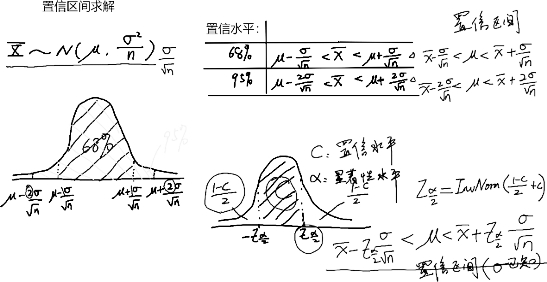 置信区间求解
X̄ ~ N(μ, σ²/n) σ/√n
置信水平: 置信区间
68% μ-σ/√n < X̄ < μ+σ/√n X̄-σ/√n < μ < X̄+σ/√n
95% μ-2σ/√n < X̄ < μ+2σ/√n X̄-2σ/√n < μ < X̄+2σ/√n
68%
95%
μ-2σ/√n μ-σ/√n μ+1σ/√n μ+2σ/√n
C: 置信水平
α: 显著性水平
1-C/2 C 1-C/2
-Zα/2 Zα/2
Zα/2 = InvNom(1-C/2 + C)
X̄-Zα/2 σ/√n < μ < X̄+Zα/2 σ/√n
置信区间(σ已知)